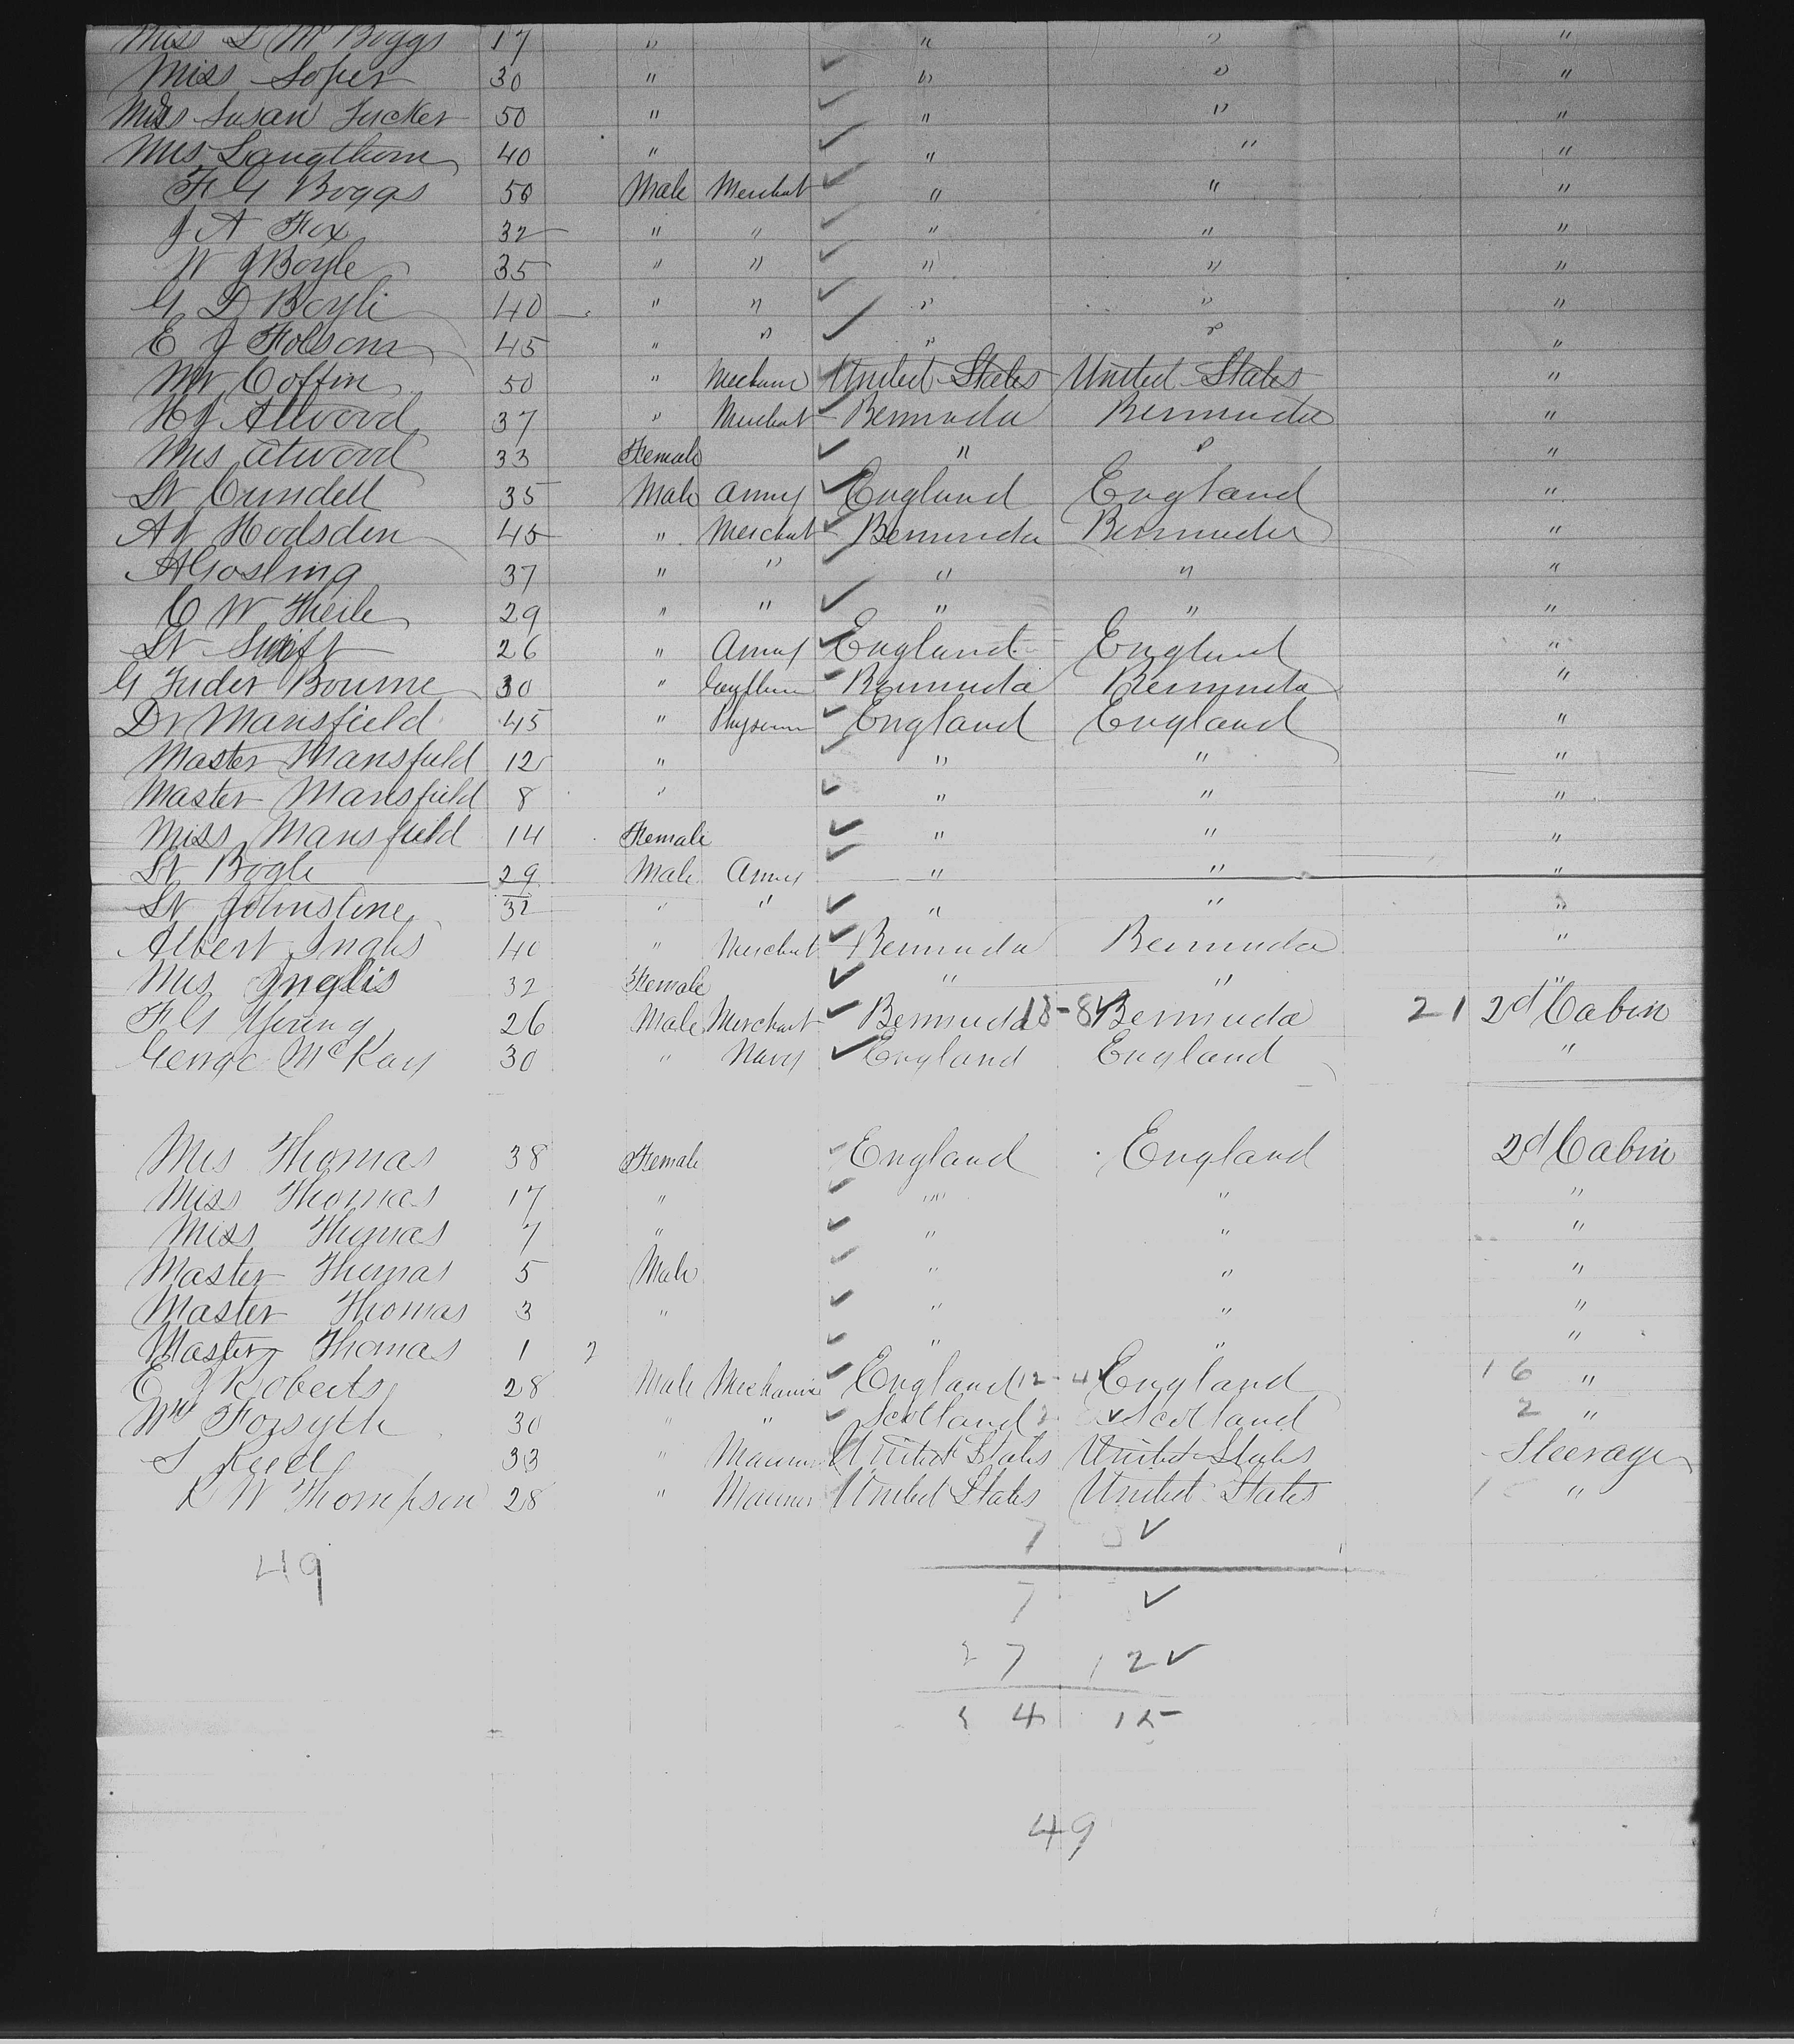 Miss L M Boggs 17 " " " "
Miss Soper 30 " " " "
Miss Susan Tucker 50 " " " "
Mrs Langthorn 40 " " " "
F G Boggs 50 Male Merchant " " "
J A Fox 32 " " " " "
W J Boyle 35 " " " " "
G D Boyli 40 " " " " "
E J Folsom 45 " " " " "
Mr Coffin 50 " Mechanic United States United States "
H J Atwood 37 " Merchant Bermuda Bermuda "
Mrs Atwood 33 Female " " "
Lt Cundell 35 Male Army England England "
A J Hodsden 45 " Merchant Bermuda Bermuda "
A Gosling 37 " " " " "
C W Theile 29 " " " " "
Lt Swift 26 " Army England England "
G Tuder Bourne 30 " Bermuda Bermuda "
Dr Mansfield 45 " Physician England England "
Master Mansfield 12 " " " "
Master Mansfield 8 " " " "
Miss Mansfield 14 Female " " "
Lt Bogle 29 Male Army " " "
Lt Johnstone 32 " " " " "
Albert Inglis 40 " Merchant Bermuda Bermuda "
Mrs Inglis 32 Female " " "
F G Young 26 Male Merchant Bermuda 13-8 Bermuda 21 2d Cabin
George McKay 30 " Navy England England "
Mrs Thomas 38 Female England England 2d Cabin
Miss Thomas 17 " " " "
Miss Thomas 7 " " " "
Master Thomas 5 Male " " "
Master Thomas 3 " " " "
Master Thomas 1 " " "
E J Roberts 28 Male Mechanic England 12-4 England 16 "
Wm Forsyth 30 " " Scotland 2 Scotland 2 "
S Reed 33 " Mariner United States United States Steerage
R W Thompson 28 " Mariner United States United States "
7 ✓
49
7 ✓
27 12 ✓
34 15
49